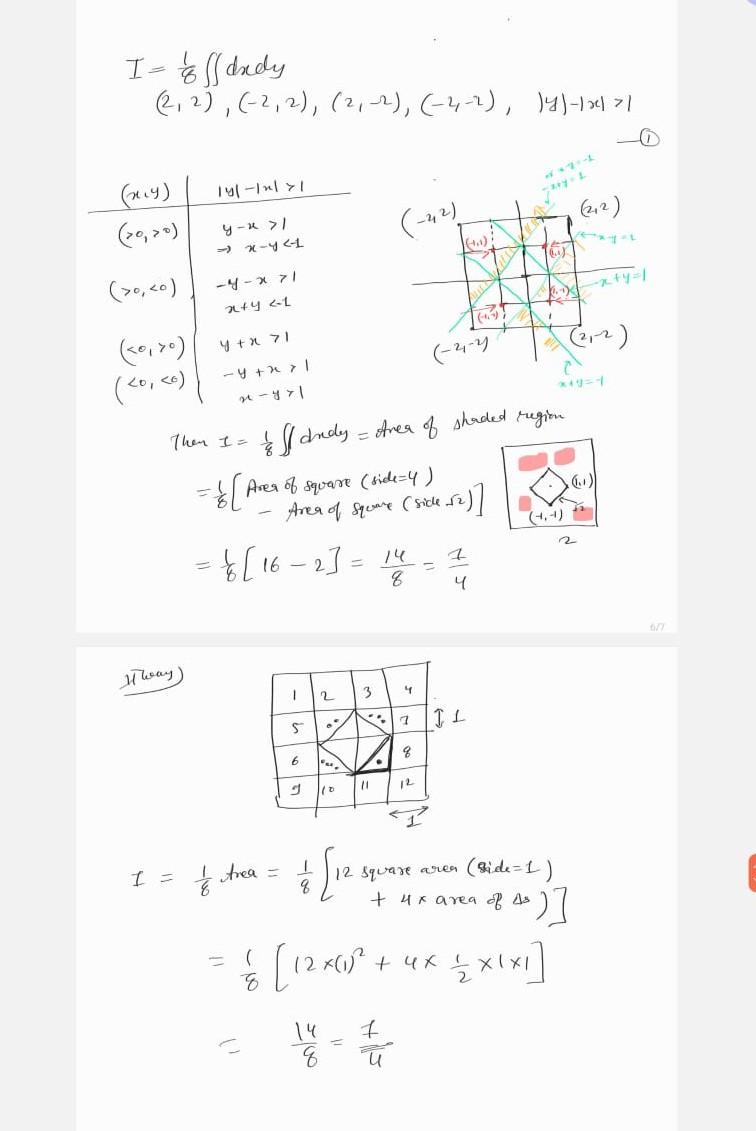 I = 1/8 ∬dxdy
(2, 2), (-2, 2), (2, -2), (-2, -2), |y|-|x| >1
—①
(x,y) | |y|-|x| >1
(>0, >0) y-x >1
→ x-y <-1
(>0, <0) -y-x >1
x+y <-1
(<0, >0) y+x >1
(<0, <0) -y+x >1
x-y >1
x+y=1
(-2, 2)
(2,2)
(-1,1)
(1,1)
x-y=1
x+y=1
(1,-1)
(-1,-1)
(-2,-2)
(2,-2)
x+y=-1
Then I = 1/8 ∬ dxdy = Area of shaded region
= 1/8 [ Area of square (side=4)
- Area of square (side √2) ]
(1,1)
(-1,-1)
√2
2
= 1/8 [ 16 - 2 ] = 14/8 = 7/4
6/7
II way)
1 2 3 4
5 7
6 8
9 10 11 12
↕ 1
1
I = 1/8 Area = 1/8 [ 12 square area (side=1)
+ 4 × area of Δs ) ]
= 1/8 [ 12×(1)² + 4× 1/2 ×1×1 ]
= 14/8 = 7/4